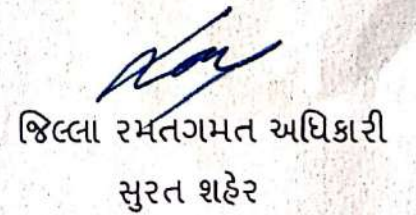 જિલ્લા રમતગમત અધિકારી
સુરત શહેર